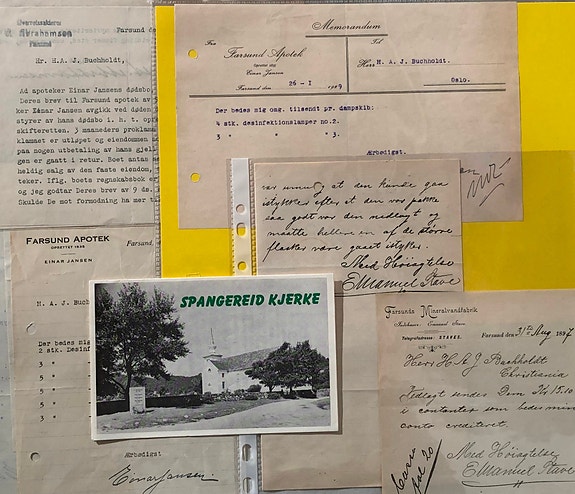 Overretssakfører
Abrahamsen
Farsund
Farsund de
Hr. H.A. J. Buchholdt,
Ad apoteker Einar Jansens dødsbo,
Deres brev til Farsund apotek av
ker Einar Jansen avgikk ved døden
styrer av hans dødsbo i. h. t. opr
skifteretten. 3 maaneders proklama
klamat er utløpet og eiendommen
paa nogen utbetaling av hans gjell
gen er gaatt i retur. Boet antas
heldig salg av den faste eiendom,
teker. Iflg. boets regnskabsbok er
og jeg godtar Deres brev av 9 ds.
Skulde De mot formodning ha mer ti
Memorandum
Fra
Til
Farsund Apotek
Einar Jansen
Farsund den 26 - I 1929
Herr H. A. J. Buchholdt.
Oslo.
Der bedes mig omg. tilsendt pr. dampskib:
4 stk. desinfektionslamper no.2.
3 " " " 3.
Ærbødigst.
var umulig at den kunde gaa
istykker efter at den var pakke
saa godt var den nedlagt og
maatte hellere en af de större
flasker være gaaet istykker.
Med Høiagtelse
Emanuel Stave
FARSUND APOTEK
OPRETTET 1838
EINAR JANSEN
Farsund,
H. A. J. Buch
Der bedes mig
2 stk. Desinf
3 "
3 "
5 "
5 "
3 "
Ærbødigst
Einar Jansen.
SPANGEREID KJERKE
Farsunds Mineralvandfabrik
Indehaver: Emanuel Stave
Telegrafadresse: STAVES.
Farsund den 31te Aug 1897
Herr H A J Buchholdt
Christiania
Indlagt sendes Dem Kr 15.10
i contanter som bedes min
conto crediteret.
Med Høiagtelse
Emanuel Stave